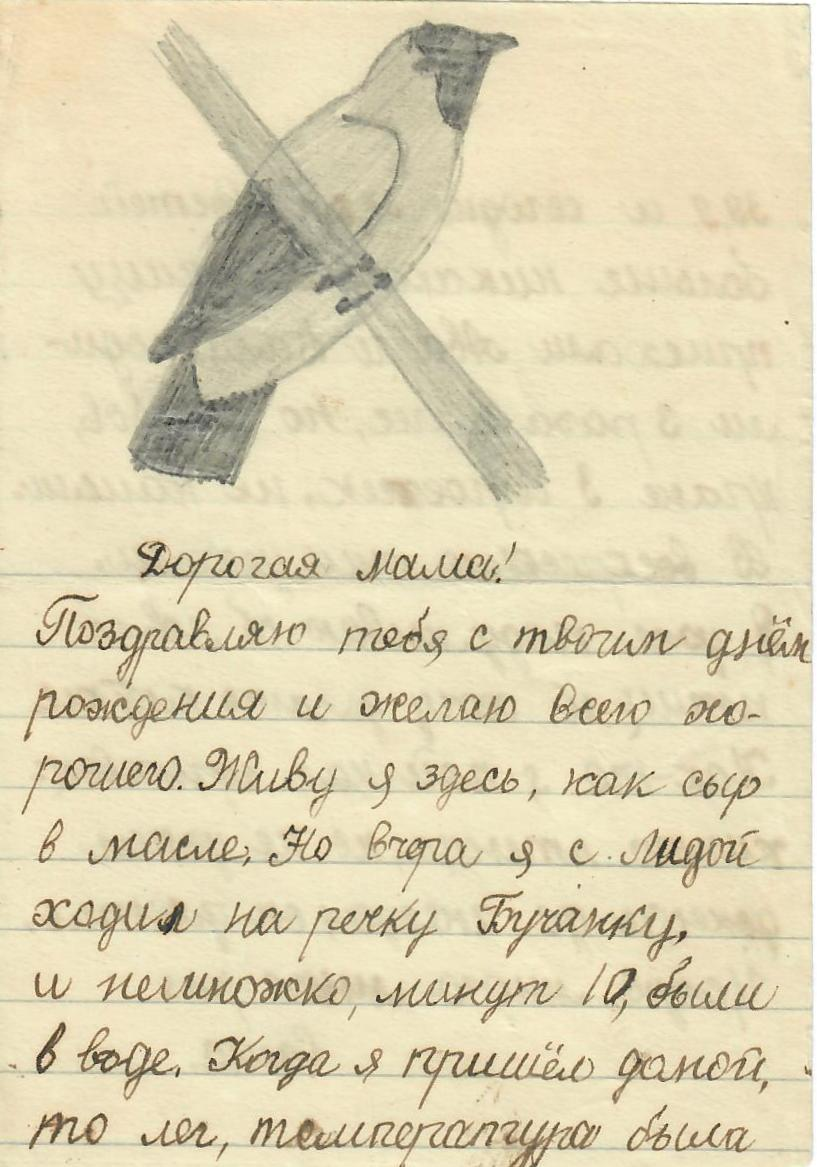 Дорогая мама!
Поздравляю тебя с твоим днём
рождения и желаю всего хо-
рошего. Живу я здесь, как сыр
в масле. Но вчера я с Лидой
ходил на речку Бучанку,
и немножко, минут 10, были
в воде. Когда я пришёл домой,
то лег, температура была